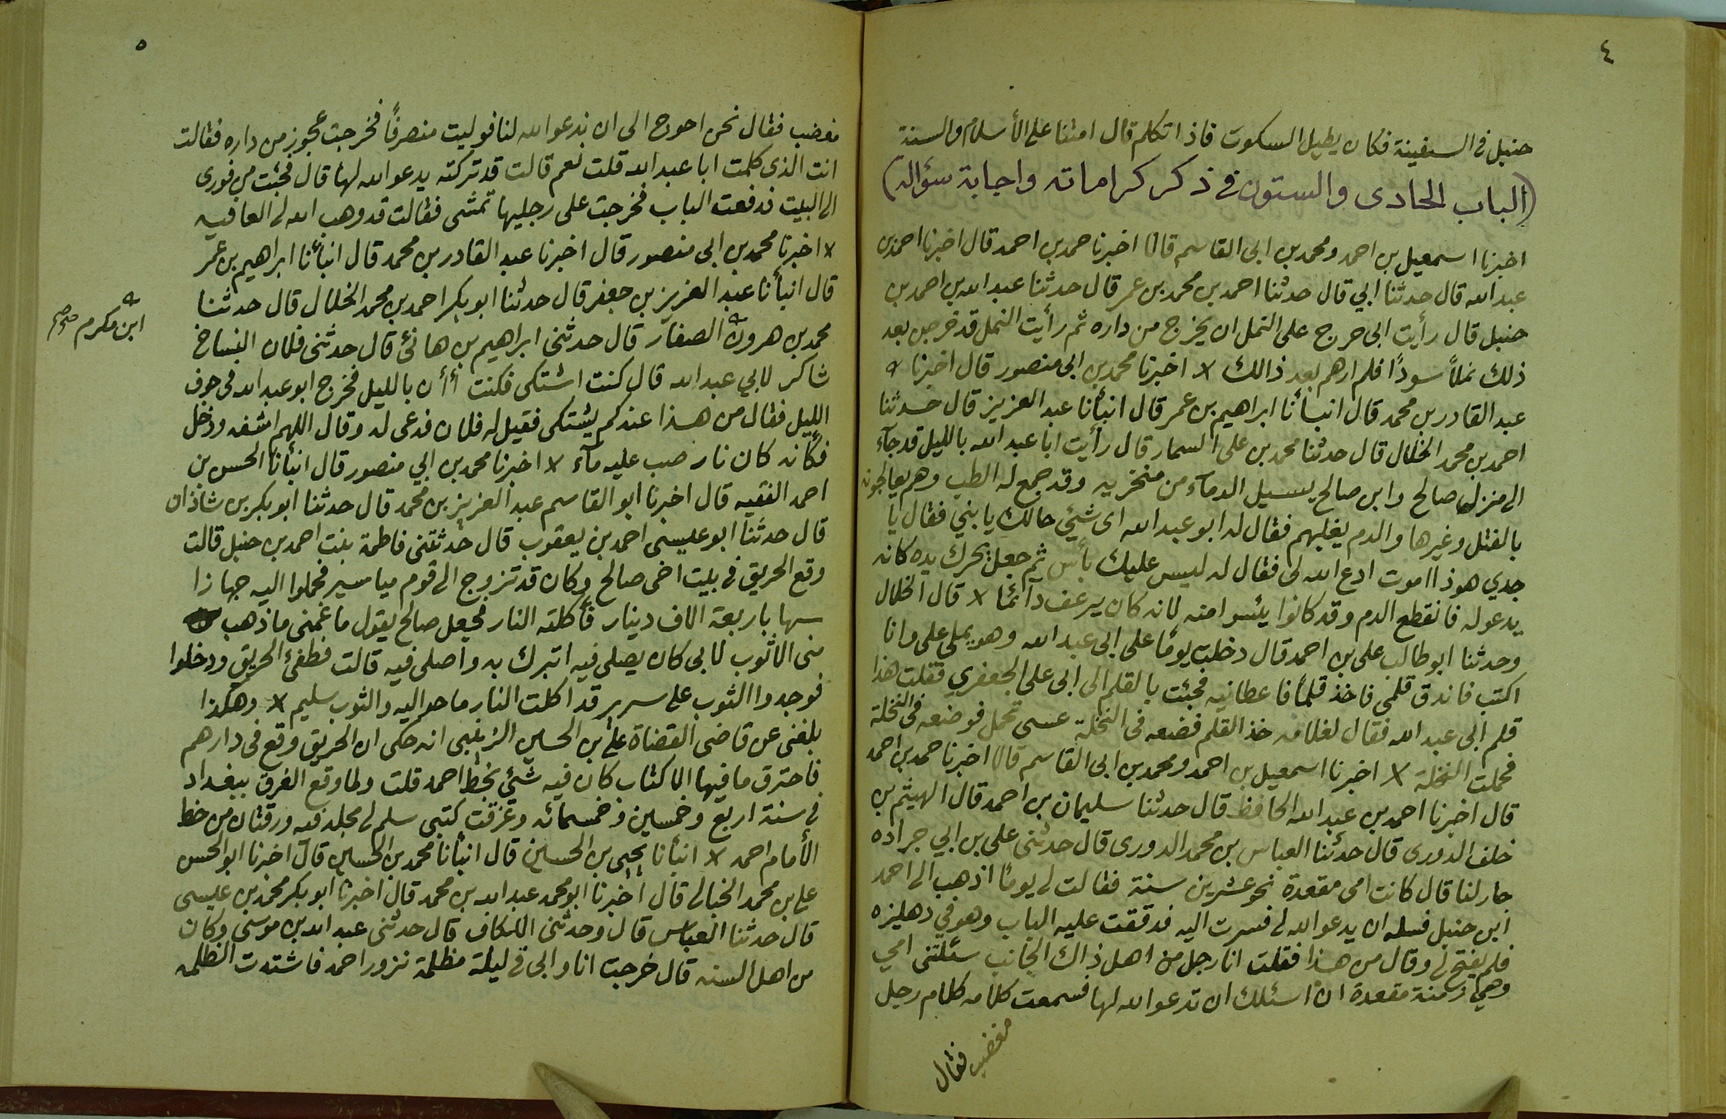 ٤
حنبل فى السفينة فكان يطيل السكوت فاذا تكلم قال امتنا على الأسلام والسنة
(الباب الحادى والستون فى ذكر كراماته واجابة سؤاله)
اخبرنا اسمعيل بن احمد ومحمد بن ابى القاسم قالا اخبرنا حمد بن احمد قال اخبرنا احمد بن
عبد الله قال حدثنا ابي قال حدثنا احمد بن محمد بن عمر قال حدثنا عبد الله بن احمد بن
حنبل قال رأيت ابى حرج على النمل ان يخرج من داره ثم رأيت النمل قد خرجن بعد
ذلك نملاً سوداً فلم ارهم بعد ذالك × اخبرنا محمد بن ابى منصور قال اخبرنا
عبد القادر بن محمد قال انبأنا ابراهيم بن عمر قال انبأنا عبد العزيز قال حدثنا
احمد بن محمد الخلال قال حدثنا محمد بن على السمار قال رأيت ابا عبد الله بالليل قد جآء
الى منزل صالح وابن صالح يسيل الدمآء من منخريه وقد جمع له الطب وهم يعالجونه
بالفتل وغيرها والدم يغلبهم فقال له ابو عبد الله اى شيئ حالك يا بني فقال يا
جدى هوذا اموت ادع الله لى فقال له ليس عليك بأس ثم جعل يحرك يده كانه
يدعو له فانقطع الدم وقد كانوا يئسوا منه لانه كان يرعف دآئمًا × قال الخلال
وحدثنا ابو طالب على بن احمد قال دخلت يومًا على ابى عبد الله وهو يملى على وانا
اكتب فاندق قلمى فاخذ قلمًا فاعطانيه فجئت بالقلم الى ابى على الجعفري فقلت هذا
قلم ابى عبد الله فقال لغلامه خذ القلم فضعه فى النخلة عسى تحمل فوضعه فى النخلة
فحملت النخلة × اخبرنا اسمعيل بن احمد ومحمد بن ابى القاسم قالا اخبرنا حمد بن احمد
قال اخبرنا احمد بن عبد الله الحافظ قال حدثنا سليمان بن احمد قال الهيثم بن
خلف الدورى قال حدثنا العباس بن محمد الدورى قال حدثنى على بن ابي جراده
جار لنا قال كانت امى مقعدة نحو عشرين سنة فقالت لى يومًا اذهب الى احمد
ابن حنبل فسله ان يدعو الله لى فسرت اليه فدققت عليه الباب وهو في دهليزه
فلم يفتح لى وقال من هذا فقلت انا رجل من اهل ذاك الجانب سئلتنى امي
وهي زمنة مقعدة ان اسئلك ان تدعو الله لها فسمعت كلامه كلام رجل
مغضب فقال
٥
مغضب فقال نحن احوج الى ان ندعو الله لنا فوليت منصرفاً فخرجت عجوز من داره فقالت
انت الذى كلمت ابا عبد الله قلت نعم قالت قد تركته يدعو الله لها قال فجئت من فورى
الى البيت فدفعت الباب فخرجت على رجليها تمشى فقالت قد وهب الله لى العافيه
× اخبرنا محمد بن ابى منصور قال اخبرنا عبد القادر بن محمد قال انبأنا ابراهيم بن عمر
قال انبأنا عبد العزيز بن جعفر قال حدثنا ابو بكر احمد بن محمد الخلال قال حدثنا
محمد بن هرون الصفار قال حدثني ابراهيم بن هانئ قال حدثنى فلان النساخ
شاكر لابي عبد الله قال كنت اشتكى فكنت أأن بالليل فخرج ابو عبد الله فى جوف
الليل فقال من هذا عندكم يشتكى فقيل له فلان فدعى له وقال اللهم اشفه ودخل
فكانه كان نار صب عليه مآء × اخبرنا محمد بن ابي منصور قال انبأنا الحسن بن
احمد الفقيه قال اخبرنا ابو القاسم عبد العزيز بن محمد قال حدثنا ابو بكر بن شاذان
قال حدثنا ابو عليسى احمد بن يعقوب قال حدثتنى فاطمة بنت احمد بن حنبل قالت
وقع الحريق فى بيت اخى صالح وكان قد تزوج الى قوم مياسير فحملوا اليه جهازا
سها باربعة الاف دينار فأكلته النار فجعل صالح يقول ما غمنى ما ذهب
منى الا ثوب لابى كان يصلى فيه اتبرك به واصلى فيه قالت فطفئ الحريق ودخلوا
فوجدوا الثوب على سرير قد اكلت النار ما حواليه والثوب سليم × وهكذا
بلغنى عن قاضى القضاة على بن الحسين الزينبى انه حكى ان الحريق وقع فى دارهم
فاحترق ما فيها الا كتاب كان فيه شيئ بخط احمد قلت ولما وقع الغرق ببغداد
فى سنة اربع وخمسين وخمسمائه وغرقت كتبى سلم لى مجلد فيه ورقتان من خط
الأمام احمد × انبأنا يحيى بن الحسين قال انبأنا محمد بن الحسين قال اخبرنا ابو الحسن
على بن محمد الخبالى قال اخبرنا ابو محمد عبد الله بن محمد قال اخبرنا ابو بكر محمد بن عليسى
قال حدثنا العباس قال وحدثنى اللكاف قال حدثنى عبد الله بن موسى وكان
من اهل السنه قال خرجت انا وابى فى ليلة مظلمة نزور احمد فاشتدت الظلمه
ابن مكرم صح